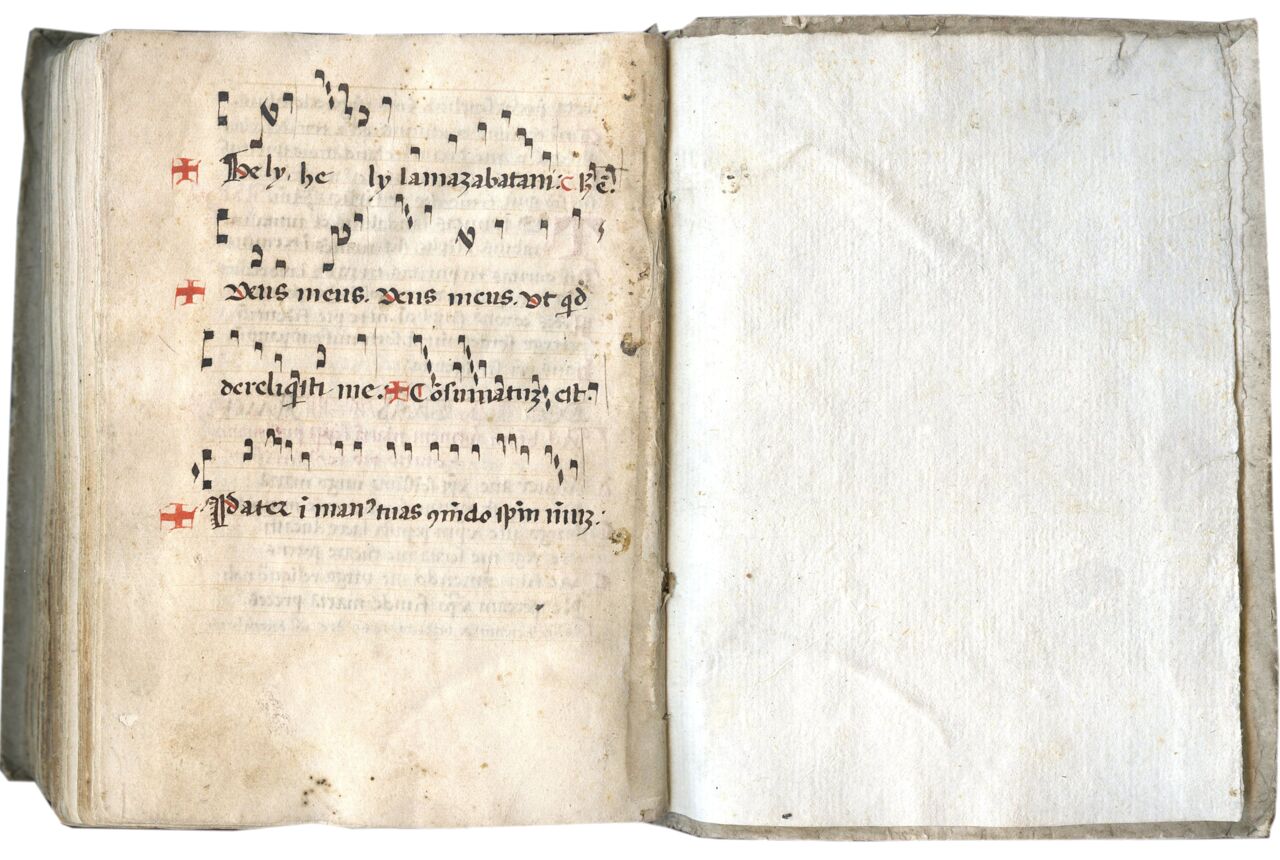 ✠ Hely, he ly lamazabatani: c Rꝫ ē.
✠ Deus meus. Deus meus. Ut qd
dereliqisti me. ✠ Cōsumatuꝫ est.
✠ Pater ī manꝰ tuas ꝯmēdo spm̄ meuꝫ: